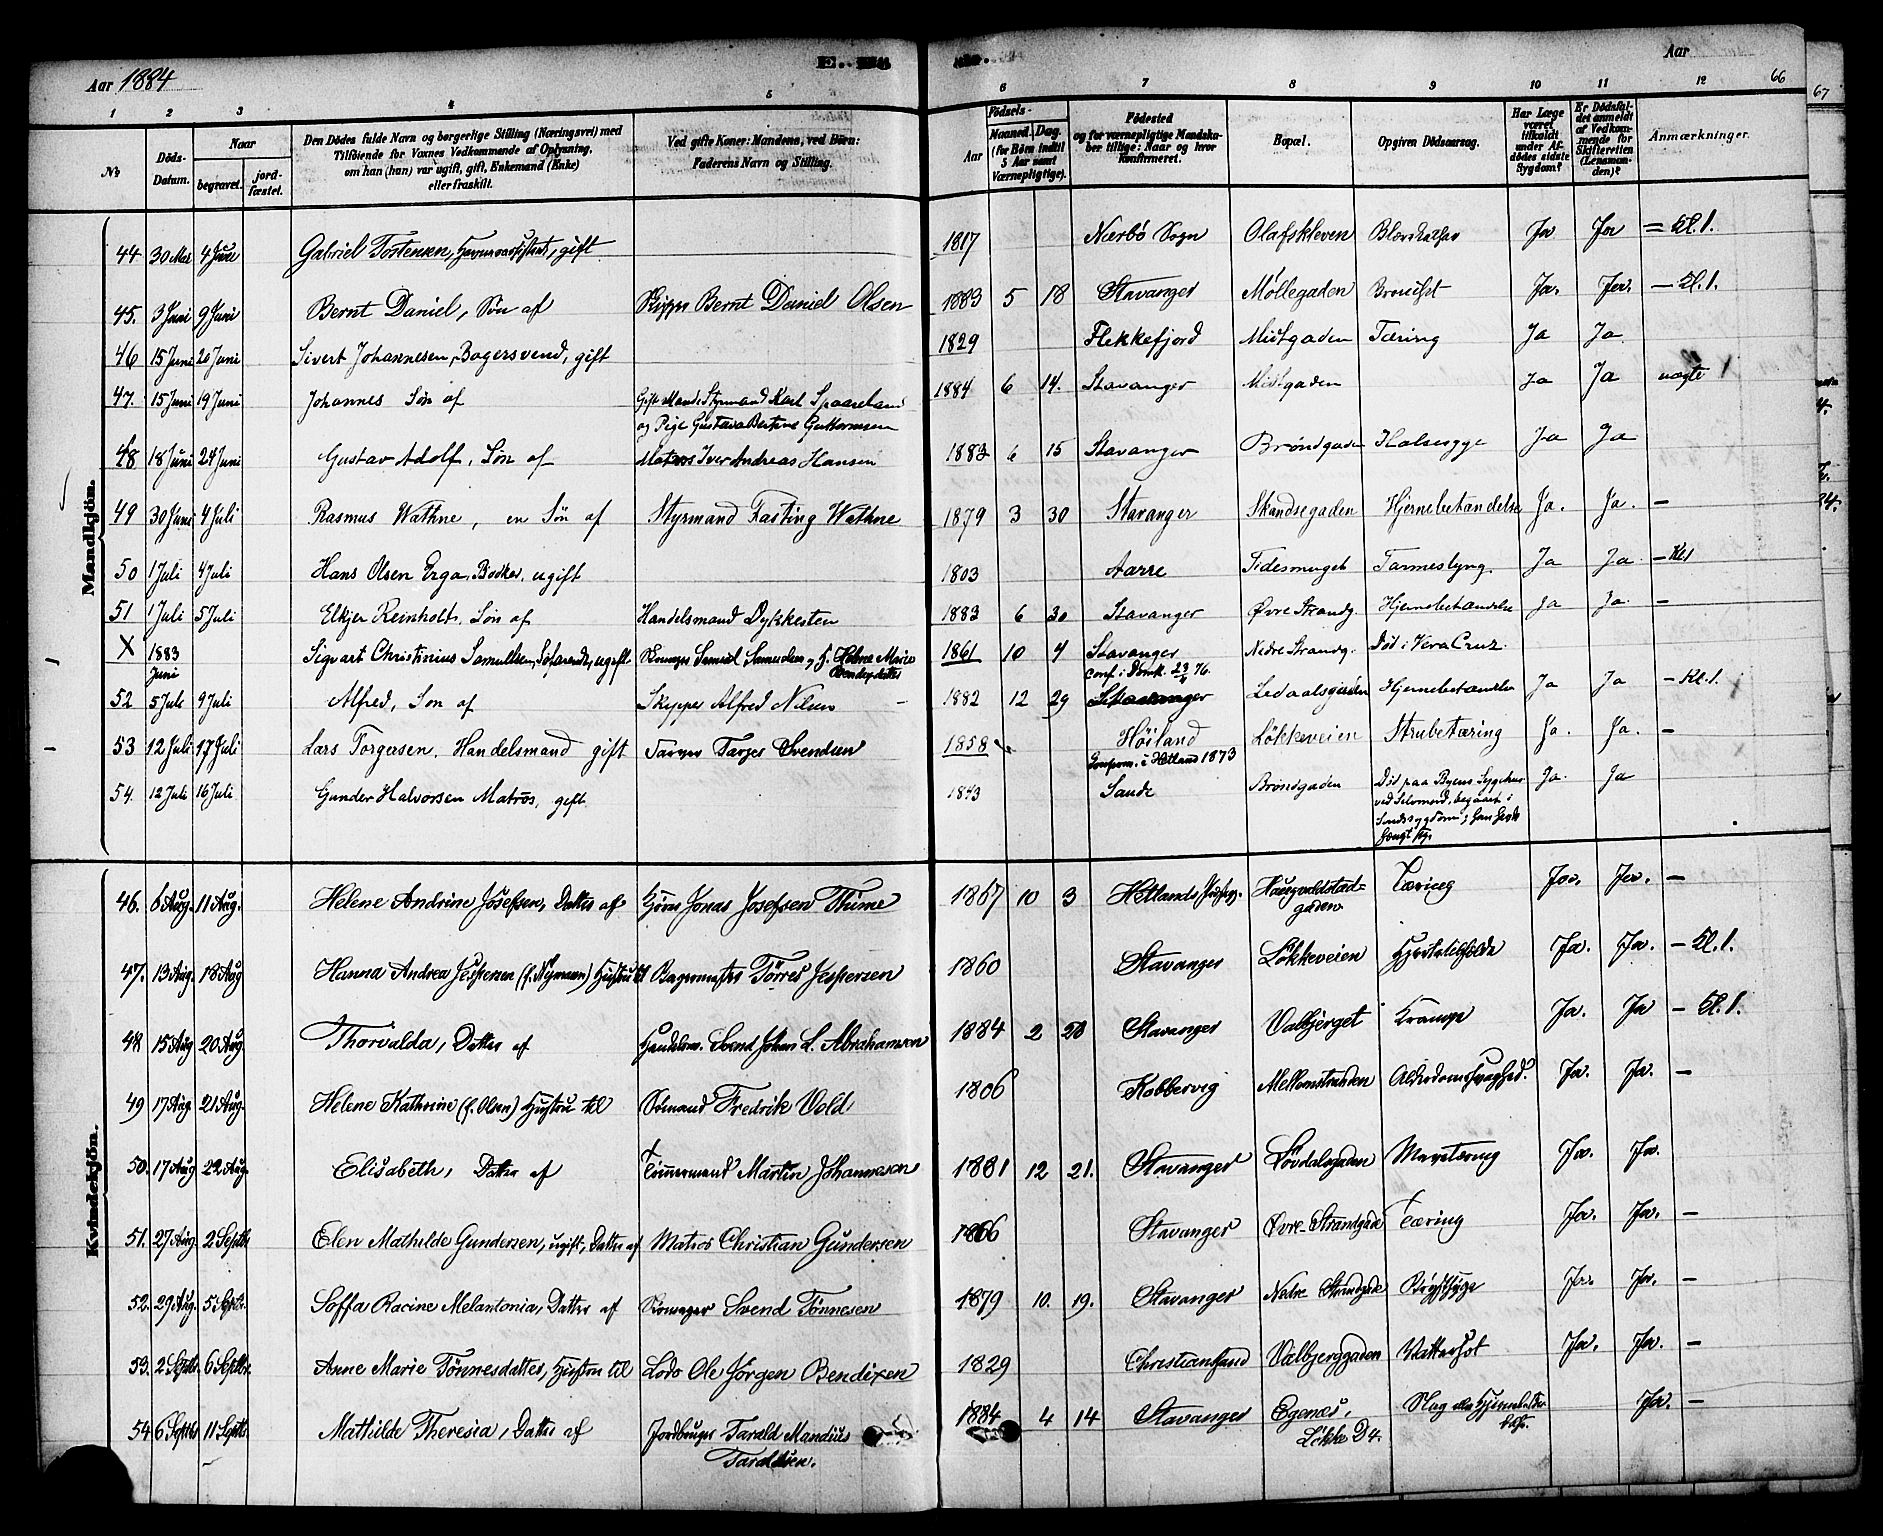 Aar 1884
Aar
66
67
1 2 3 4 5 6 7 8 9 10 11 12
№
Döds-Datum.
Naar
begravet.
jord-fæstet.
Den Dödes fulde Navn og borgerlige Stilling (Næringsvei) med
Tilföiende for Voxnes Vedkommende af Oplysning,
om han (hun) var ugift, gift, Enkemand (Enke)
eller fraskilt.
Ved gifte Koner: Mandens, ved Börn:
Faderens Navn og Stilling.
Födsels-
Aar
Maaned. Dag.
(for Börn indtil
5 Aar samt
Værnepligtige).
Födested
og for værnepligtige Mandska-
ber tillige: Naar og hvor
konfirmeret.
Bopæl.
Opgiven Dödsaarsag.
Har Læge
været
tilkaldt
under Af-
dödes sidste
Sygdom?
Er Dödsfal-
det anmeldt
af Vedkom-
mende for
Skifteretten
(Lensman-
den)?
Anmærkninger.
Mandkjön.
44 30 Mai 4 Juni Gabriel Tostensen, gift 1817 Nærbö Sogn Olafskleven Ja Ja = Kl. 1.
45. 3 Juni 9 Juni Bernt Daniel, Sön af Skipper Bernt Daniel Olsen 1883 5 18 Stavanger Möllegaden Ja. Ja. — Kl. 1.
46 15 Juni 20 Juni Sivert Johannesen, Bagersvend, gift 1829 Flekkefjord Midtgaden Tæring Ja Ja
47. 15 Juni 19 Juni Johannes Sön af Gift Mand Styrmand Karl Spaareland 1884 6 14. Stavanger Midtgaden Ja Ja uægte
og Pige Gustava Bertine Guttormsen
48 18 Juni 24 Juni Gustav Adolf, Sön af Matros Iver Andreas Hansen 1883 6 15 Stavanger Bröndgaden Halssyge Ja Ja
49 30 Juni 4 Juli Rasmus Wathne, en Sön af Styrmand Fasting Wathne 1879 3 30 Stavanger Skandsegaden Hjernebetændelse Ja. Ja. —
50 1 Juli 4 Juli Hans Olsen Erga, Bödker, ugift 1803 Aarre Tidesmuget Ja Ja — Kl 1
51 1 Juli 5 Juli Elkjer Reinholt, Sön af Handelsmand Dykkesten 1883 6 30 Stavanger Övre Strandg. Hjernebetændelse Ja Ja. —
X 1883 Juni Sigvart Christinius Samuelsen, Söfarende, ugift Samuel Samuelsen, Helene Marie 1861 10 4 Stavanger Nedre Strandg. Död i Vera Cruz.
conf. i Domk. 23/4 76.
52 5 Juli 9 Juli Alfred, Sön af Skipper Alfred Nilsen 1882 12 29 Stavanger Ledaalsgaden Hjernebetændelse Ja Ja — Kl. 1.
53 12 Juli 17 Juli Lars Torgersen, Handelsmand gift Svendsen 1858 Höiland Lökkeveien Strubetæring Ja. Ja. —
i Hetland 1873
54. 12 Juli 16 Juli Gunder Halvorsen Matros, gift 1843 Saude Bröndgaden Död paa Byens Sygehus Ja. Ja
ved Selvmord, begaaet i
Kvindekjön.
46. 6 Aug. 11 Aug. Helene Andrine Josefsen, Datter af Jonas Josefsen Thime 1867 10 3 Hetlands Tæring Ja. Ja. —
47. 13 Aug. 18 Aug Hanna Andrea Jespersen (f. Nymann) Hustru til Bagermester Törres Jespersen 1860 Stavanger Lökkeveien Ja. Ja. — Kl. 1.
48 15 Aug 20 Aug. Thorvalda, Datter af Handelsm. Svend Johan L. Abrahamsen 1884 2 28 Stavanger Valbjerget Krampe Ja. Ja — Kl. 1.
49 17 Aug 21 Aug. Helene Kathrine (f. Olsen) Hustru til Sömand Fredrik Vold 1806 Kobbervig Mellemstranden Alderdomssvaghed. Ja. Ja. —
50. 17 Aug 22 Aug. Elisabeth, Datter af Timmermand Martin Johannesen 1881 12 21. Stavanger Lövdalsgaden Mavetæring Ja. Ja.
51. 27 Aug 2 Septb. Elen Mathilde Gundersen, ugift, Datter af Matros Christian Gundersen 1866 Stavanger Övre Strandgade Tæring Ja. Ja. —
52. 29 Aug. 5 Septb. Soffa Racine Melantonia, Datter af Svend Tönnesen 1879 10. 19. Stavanger Nedre Strandgade Brystsyge Ja. Ja. —
53. 2 Septb. 6 Septbr. Anne Marie Tönnesdatter, Hustru til Lods Ole Jörgen Bendixen 1829 Christiansand Valbjerggaden Vattersot Ja. Ja. —
54 6 Septb 11 Septb. Mathilde Theresia, Datter af Tarald Mandius 1884 4 14 Stavanger Egenæs, Ja. —
Taraldsen. Lökke D 4.